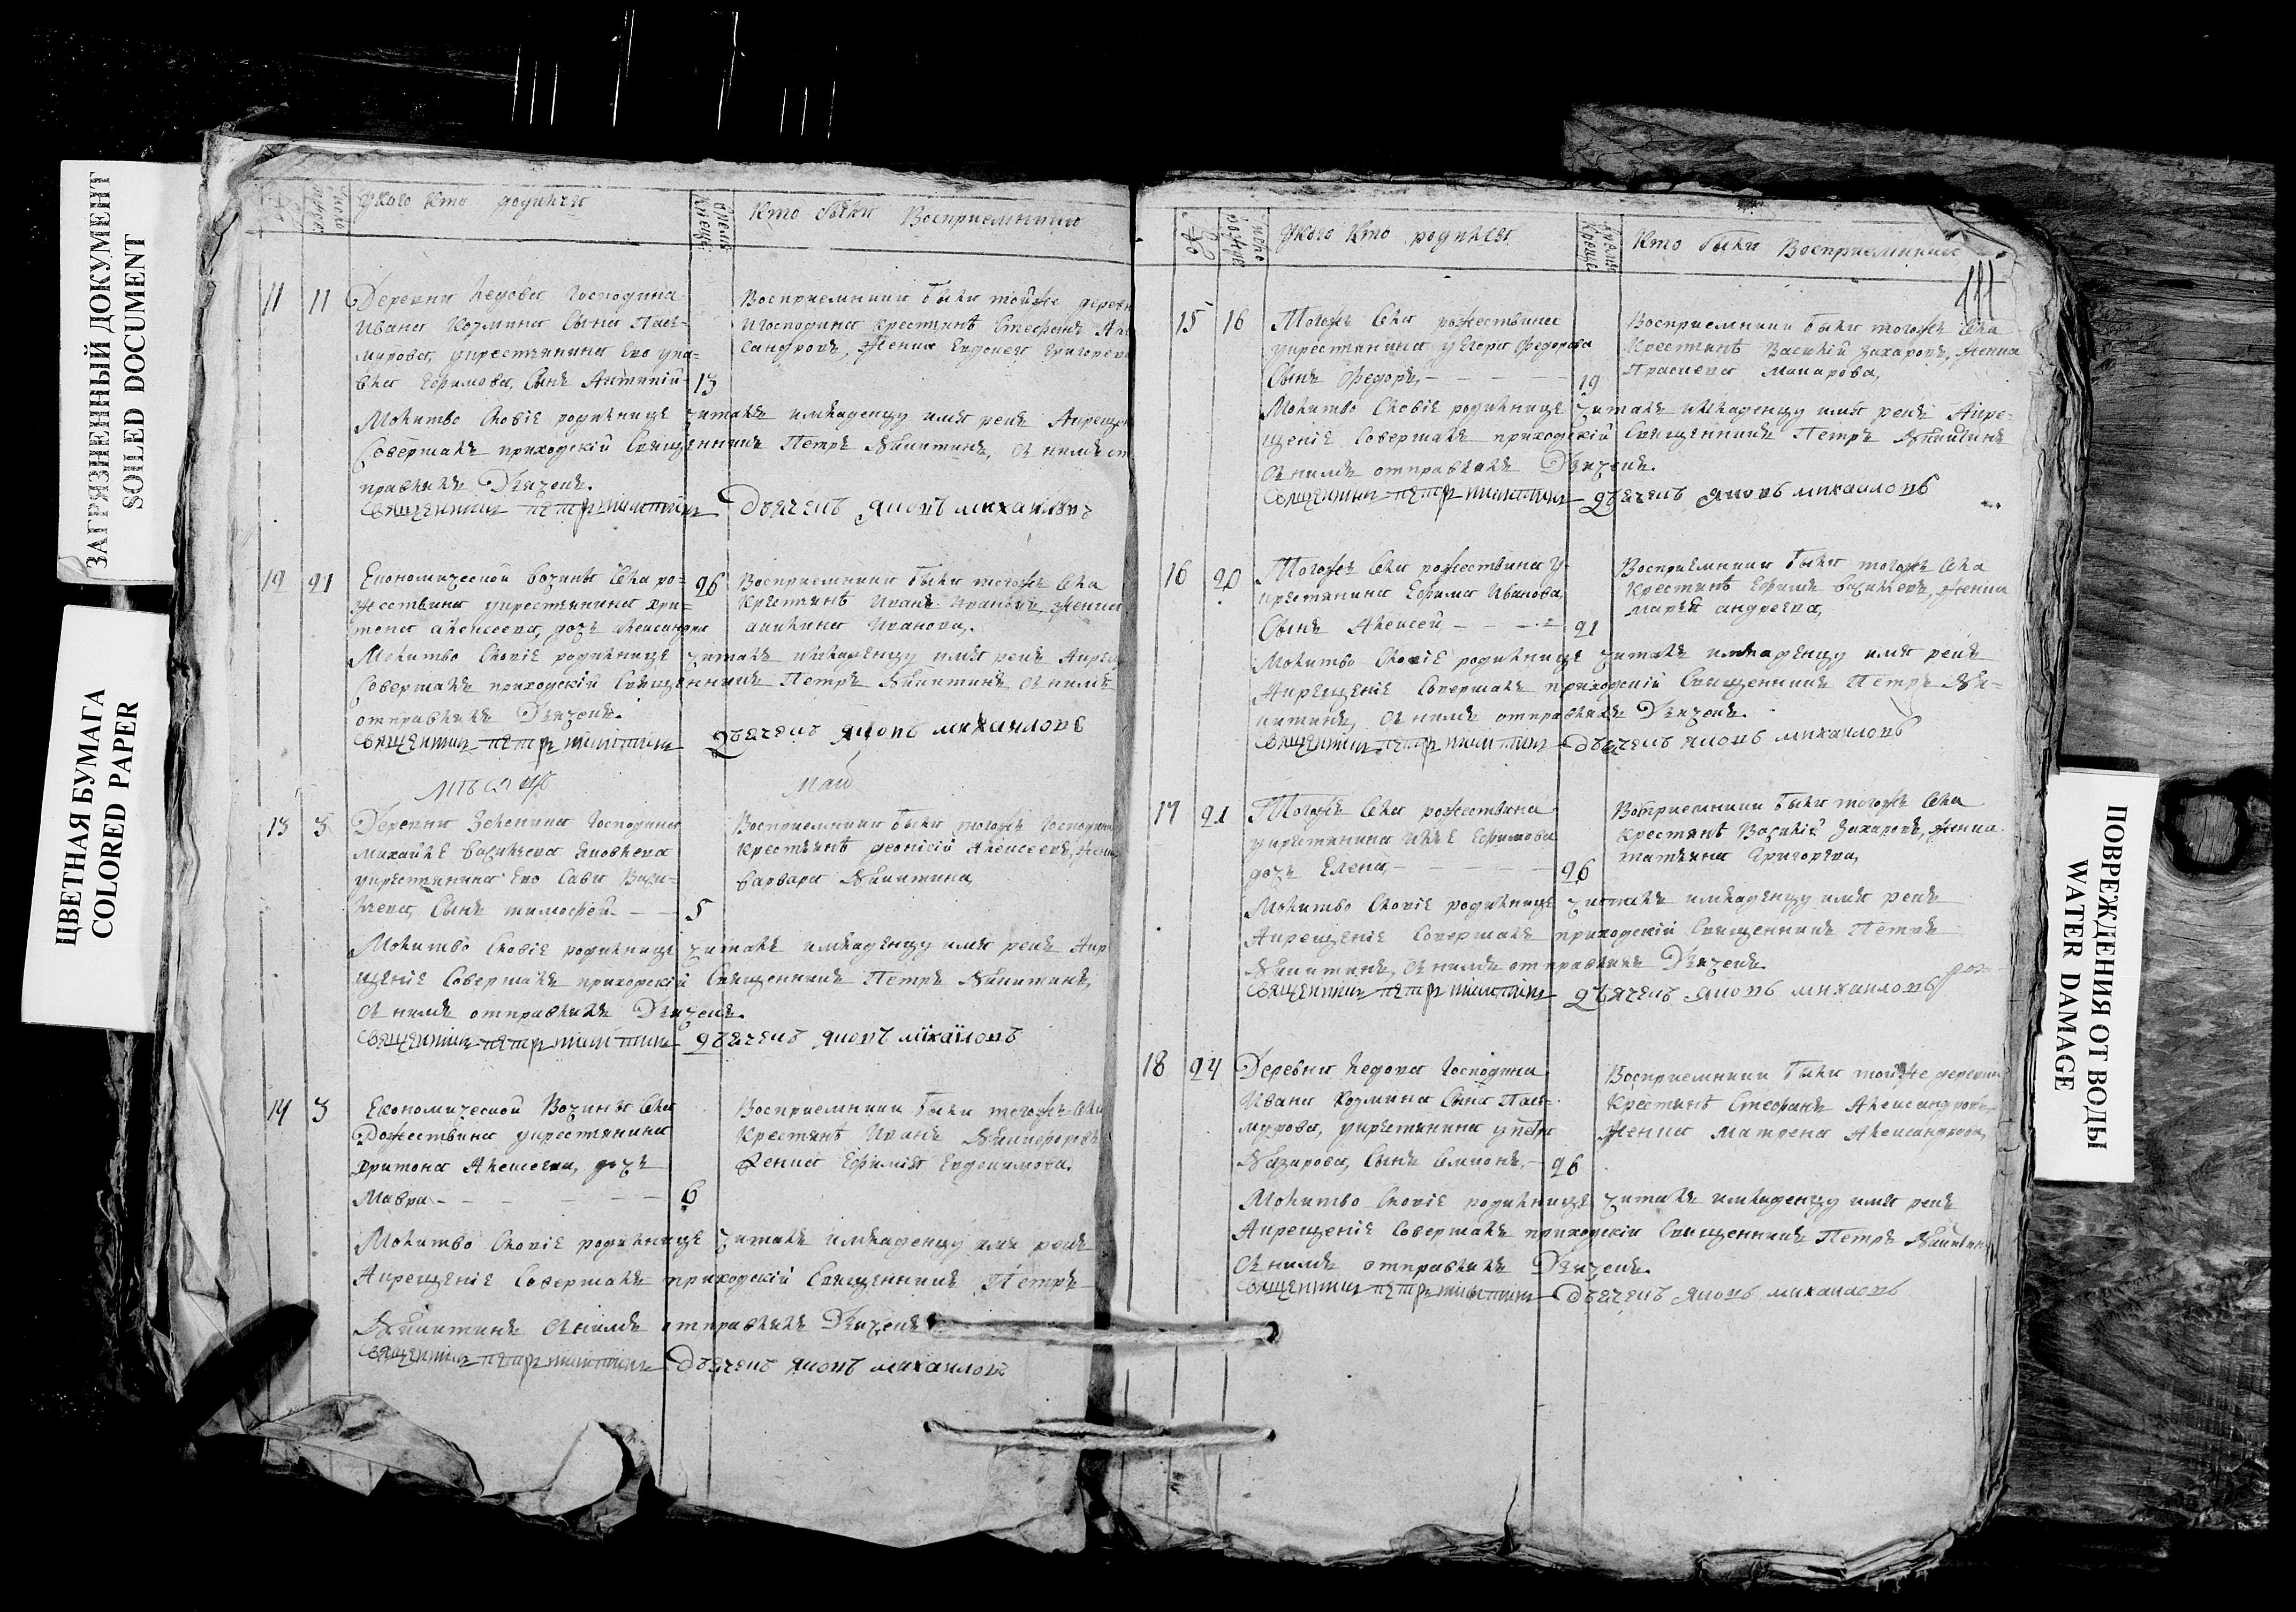 ЗАГРЯЗНЕННЫЙ ДОКУМЕНТ
SOILED DOCUMENT
ЦВЕТНАЯ БУМАГА
COLORED PAPER
У кого кто родилися
Кто были Восприемники
11 11 Деревни Ледова Господина
Ивана Козмина Сына
крестьянина Ево
Ефимова, Сынъ 13
Восприемники были тойже деревн
Игосподина крестьянъ Стефанъ
сандровъ, женка Евдокея Григорева
Молитво Словіе родилнице читалъ имладенцу имя рекъ Икреще
Совершалъ приходскій Священникъ Петръ Никитинъ, Снимъ от
правлялъ Дьячекъ.
Священникъ Петръ Никитинъ Дъячекъ Яковъ Михаиловъ
12 21 Економической вотчины Села ро-
жествина укрестьянина Хри-
тона Алексеева, дочь Александра 26
Восприемники были тогожъ Села
Крестьянъ Иванъ Ивановъ, женка
акилина Иванова,
Молитво Словіе родилнице читалъ имладенцу имя рекъ Икреще
Совершалъ приходскій Священникъ Петръ Никитинъ Снимъ
отправлялъ Дьячекъ.
Священникъ Петръ Никитинъ Дъячекъ Яковъ Михаиловъ
Месяцъ Маи
13 3 Деревни Зеленина Господина
Михайлы Василева Яковлева
укрестьянина Ево Савы Васи-
лева, Сынъ тимофей 5
Восприемники были тогожъ Господина
Крестьянъ Леонтій Алексеевъ, женка
Варвара Никитина,
Молитво Словіе родилнице читалъ имладенцу имя рекъ Икре
щеніе Совершалъ приходскій Священникъ Петръ Никитинъ,
Снимъ отправлялъ Дьячекъ.
Священникъ Петръ Никитинъ Дъячекъ Яковъ Михаіловъ
14 3 Економической Вотчины Села
Рожествина укрестьянина
Хритона Алексеева, дочь
Мавра 6
Восприемники были тогожъ Села
Крестьянъ Иванъ Никифоровъ
женка Ефимія Евдокимова,
Молитво Словіе родилнице читалъ имладенцу имя рекъ
Икрещеніе Совершалъ приходскій Священникъ Петръ
Никитинъ Снимъ отправлялъ Дьячекъ
Священникъ Петръ Никитинъ Дъячекъ Яковъ Михаиловъ
У кого кто родилися
Кто были Восприемники
111
15 16 Тогожъ Села рожествина
укрестьянина у Егора Федорова
Сынъ Федоръ, 19
Восприемники были тогожъ Села
Крестьянъ Василій Захаровъ, женка
Прасковя Макарова,
Молитво Словіе родилнице читалъ имладенцу имя рекъ Икре-
щеніе Совершалъ приходскій Священникъ Петръ Никитинъ
Снимъ отправлялъ Дьячекъ.
Священникъ Петръ Никитинъ Дъячекъ Яковъ Михаиловъ
16 20 Тогожъ Села рожествина у
крестьянина Ефима Иванова
Сынъ Алексей 21
Восприемники были тогожъ Села
Крестьянъ Ефимъ Василевъ, женка
марья андреева,
Молитво Словіе родилнице читалъ имладенцу имя рекъ
Икрещеніе Совершалъ приходскій Священникъ Петръ Ни-
китинъ, Снимъ отправлялъ Дьячекъ.
Священникъ Петръ Никитинъ Дъячекъ Яковъ Михаиловъ
17 21 Тогожъ Села рожествина
укрестьянина Ильи Ефимова
дочь Елена, 26
Восприемники были тогожъ Села
Крестьянъ Василій Захаровъ, женка
татьяна Григорева,
Молитво Словіе родилнице читалъ имладенцу имя рекъ
Икрещеніе Совершалъ приходскій Священникъ Петръ
Никитинъ, Снимъ отправлялъ Дьячекъ.
Священникъ Петръ Никитинъ Дъячекъ Яковъ Михаиловъ
18 24 Деревни Ледова Господина
Ивана Козмина Сына
укрестьянина у петра
Назарова, Сынъ Симионъ, 26
Восприемники были тойже деревни
Крестьянъ Стефанъ Александровъ
женка Матрена Александрова,
Молитво Словіе родилнице читалъ имладенцу имя рекъ
Икрещеніе Совершалъ приходскій Священникъ Петръ Никитинъ
Снимъ отправлялъ Дьячекъ.
Священникъ Петръ Никитинъ Дъячекъ Яковъ Михаиловъ
ПОВРЕЖДЕНИЯ ОТ ВОДЫ
WATER DAMAGE